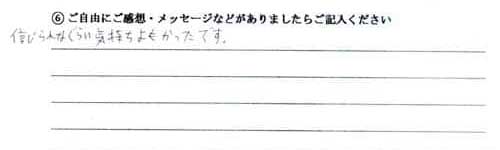 ⑥ ご自由にご感想・メッセージなどがありましたらご記入ください
信じらんなぐらい気持ちよかったです。